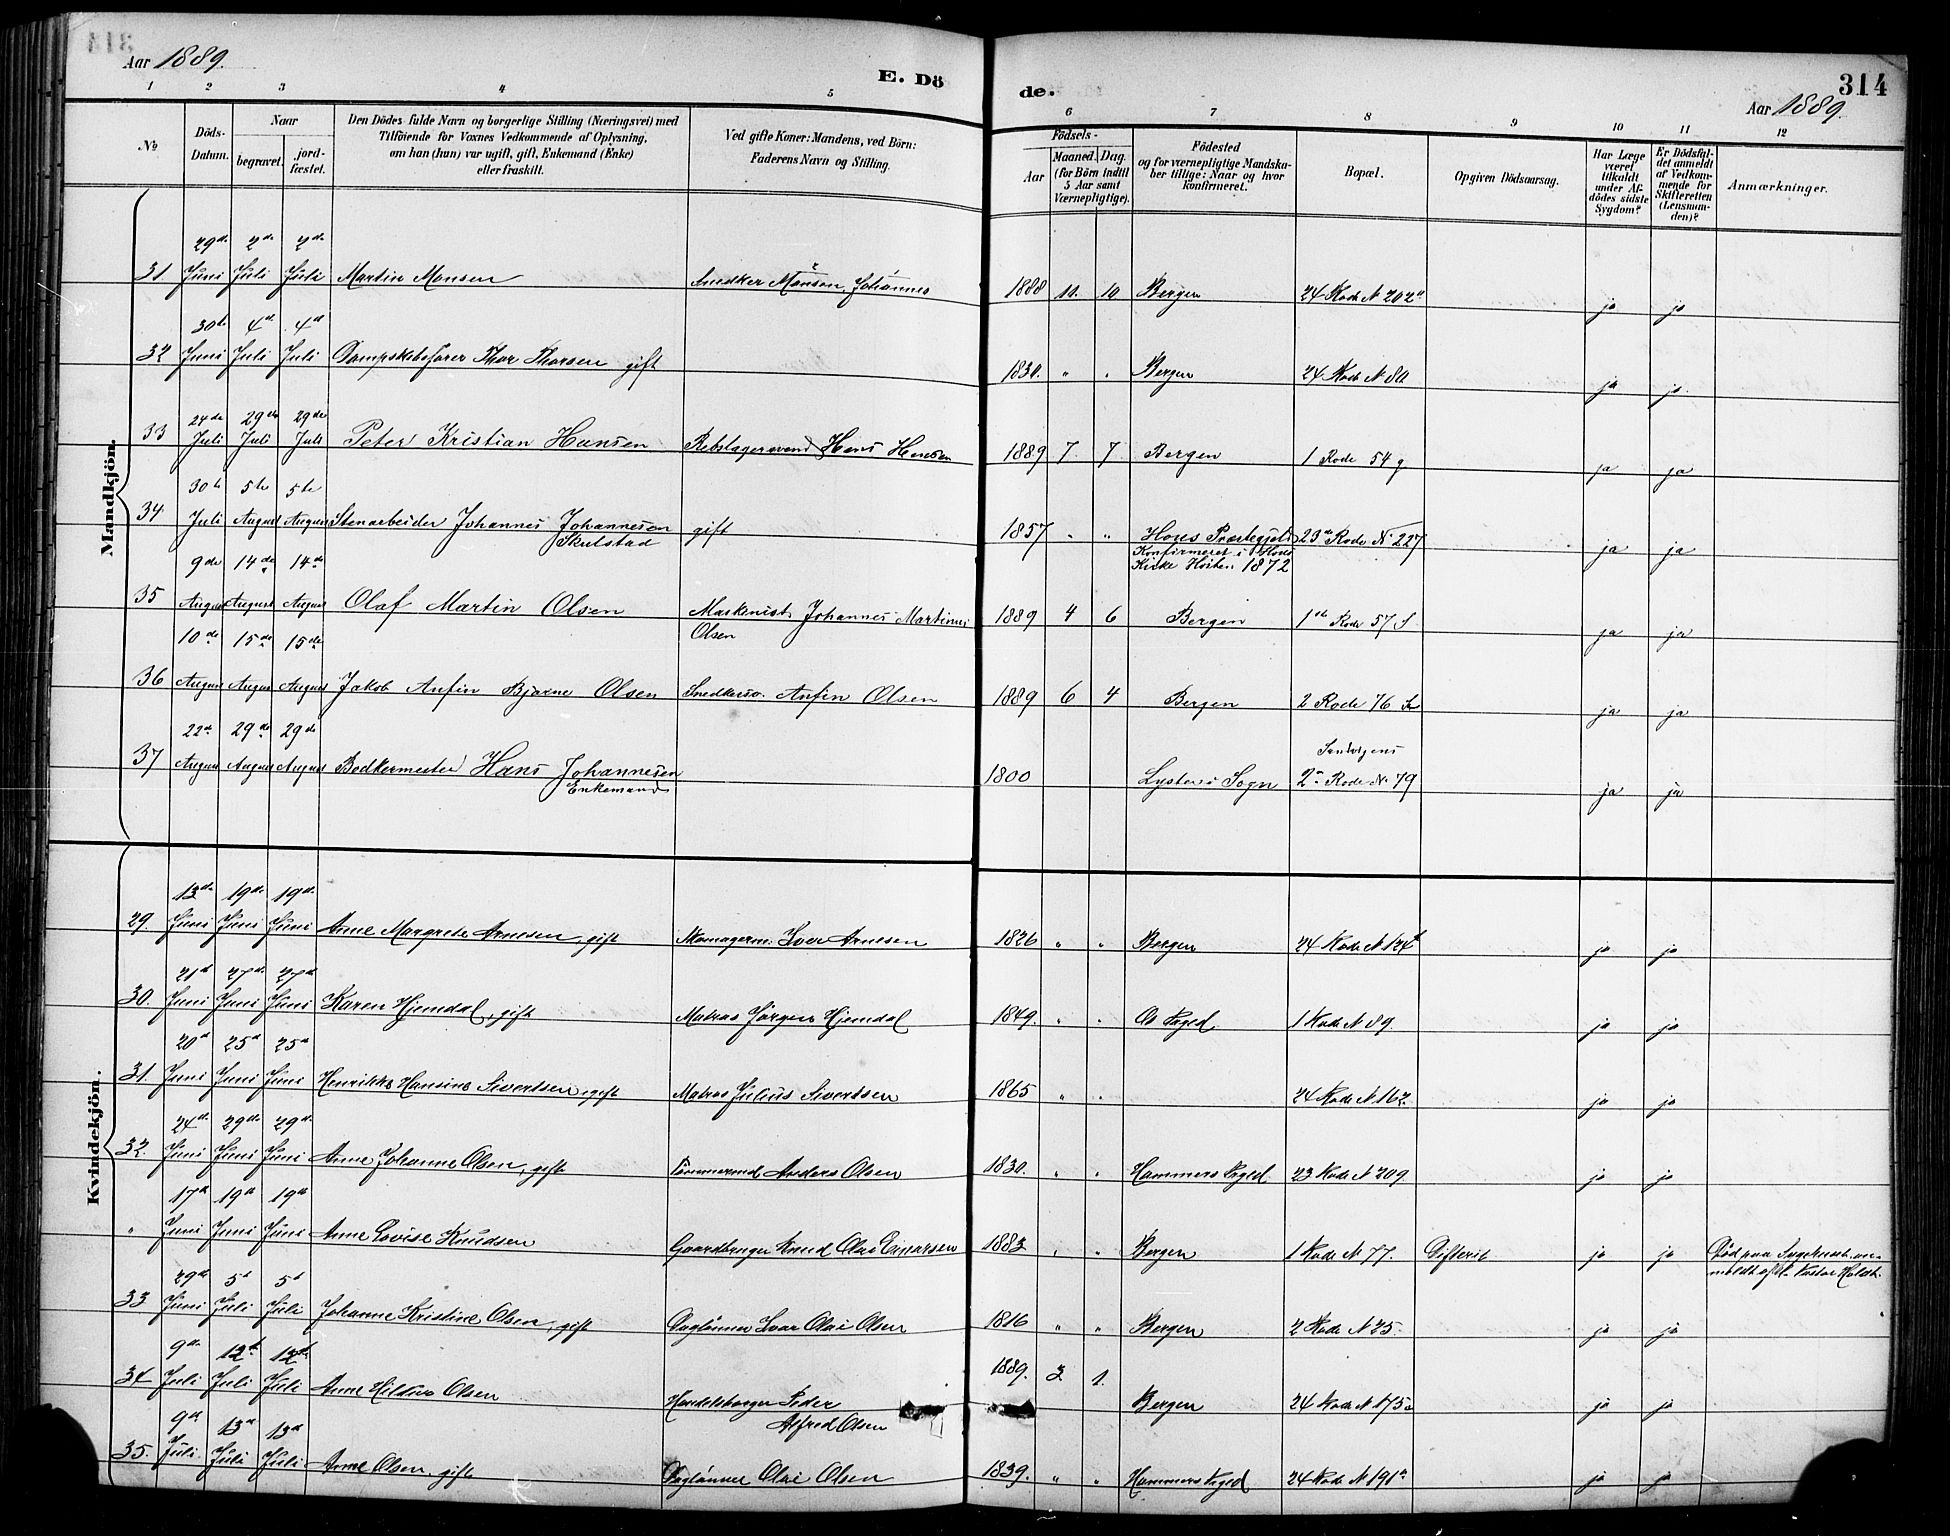 Aar 1889.
E. Dö
1 2 3 4 5
№
Döds-Datum.
Naar
begravet.
jord-fæstet.
Den Dödes fulde Navn og borgerlige Stilling (Næringsvei) med
Tilföiende for Voxnes Vedkommende af Oplysning,
om han (hun) var ugift, gift, Enkemand (Enke)
eller fraskilt.
Ved gifte Koner: Mandens, ved Börn:
Faderens Navn og Stilling.
Mandkjön.
29de 2de 2de
31 Juni Juli Juli Martin Monsen Snedker Monsen, Johannes
30te 4de 4de
32 Juni Juli Juli Dampskibsfører Thor Thorsen gift
24de 29de 29de
33 Juli Juli Juli Peter Kristian Hansen Rebslagersvend Hans Hansen
30te 5te 5te
34 Juli August August Stenarbeider Johannes Johannesen gift
Skulstad
9de 14de 14de
35 August August August Olaf Martin Olsen Maskinist Johannes Martinus
Olsen
10de 15de 15de
36 August August August Jakob Anfin Bjarne Olsen Snedkersv. Anfin Olsen
22de 29de 29de
37 August August August Bødkermester Hans Johannesen
Enkemand
Kvindekjön.
13de 19de 19de
29. Juni Juni Juni Anne Margrete Arnesen, gift Skomagerm. Iver Arnesen
21de 27de 27de
30. Juni Juni Juni Karen Hjemdal, gift Matros Jørgen Hjemdal
20de 25de 25de
31. Juni Juni Juni Henrikke Hansine Sivertsen, gift Matros Julius Sivertsen
24de 29de 29de
32. Juni Juni Juni Anne Johanne Olsen, gift Tømmermd Anders Olsen
17de 19de 19de
" Juni Juni Juni Anne Lovise Knudsen Gaardbruger Knud Olai Einarsen
29de 5te 5te
33 Juni Juli Juli Johanne Kristine Olsen, gift Daglønner Ivar Olai Olsen
9de 12te 12te
34 Juli Juli Juli Anne Hilda Olsen Handelsborger Peder
Alfred Olsen
9de 13de 13de
35. Juli Juli Juli Anne Olsen, gift Daglønner Olai Olsen
de.
314
Aar 1889.
6 7 8 9 10 11 12
Födsels-
Aar
Maaned. Dag.
(for Börn indtil
5 Aar samt
Værnepligtige).
Födested
og for værnepligtige Mandska-
ber tillige: Naar og hvor
konfirmeret.
Bopæl.
Opgiven Dödsaarsag.
Har Læge
været
tilkaldt
under Af-
dödes sidste
Sygdom?
Er Dödsfal-
det anmeldt
af Vedkom-
mende for
Skifteretten
(Lensman-
den)?
Anmærkninger.
1888 11. 10 Bergen 24 Rode N 202a ja ja
1830. " " Bergen 24 Rode N 80 ja ja
1889 7 7 Bergen 1 Rode 54 g ja ja
1857 " " Hous Præstegjeld 23de Rode N 227 ja ja
Konfirmeret i Hous
Kirke Høsten 1872
1889 4 6 Bergen 1ste Rode 57 S ja ja
1889 6 4 Bergen 2 Rode 76 ja ja
1800 Lyster i Sogn 2n Rode No 79 ja ja
1826 " " Bergen 24 Rode N 124 ja ja
1849. " " Os Prgjd 1 Rode N 89. ja ja
1865 " " 24 Rode N 162. ja ja
1830. " " Hammers Prgjd. 23 Rode N 209. ja ja
1883 " " Bergen 1 Rode N 77. Difterit ja ja Død paa Sygehuset, an-
meldt af Hr. Pastor Holdt.
1816 " " Bergen 2 Rode N 25. ja ja
1889. 3 1. Bergen 24 Rode N 175a ja ja
1839. " " Hammers Prgjd 24 Rode N 191a ja ja